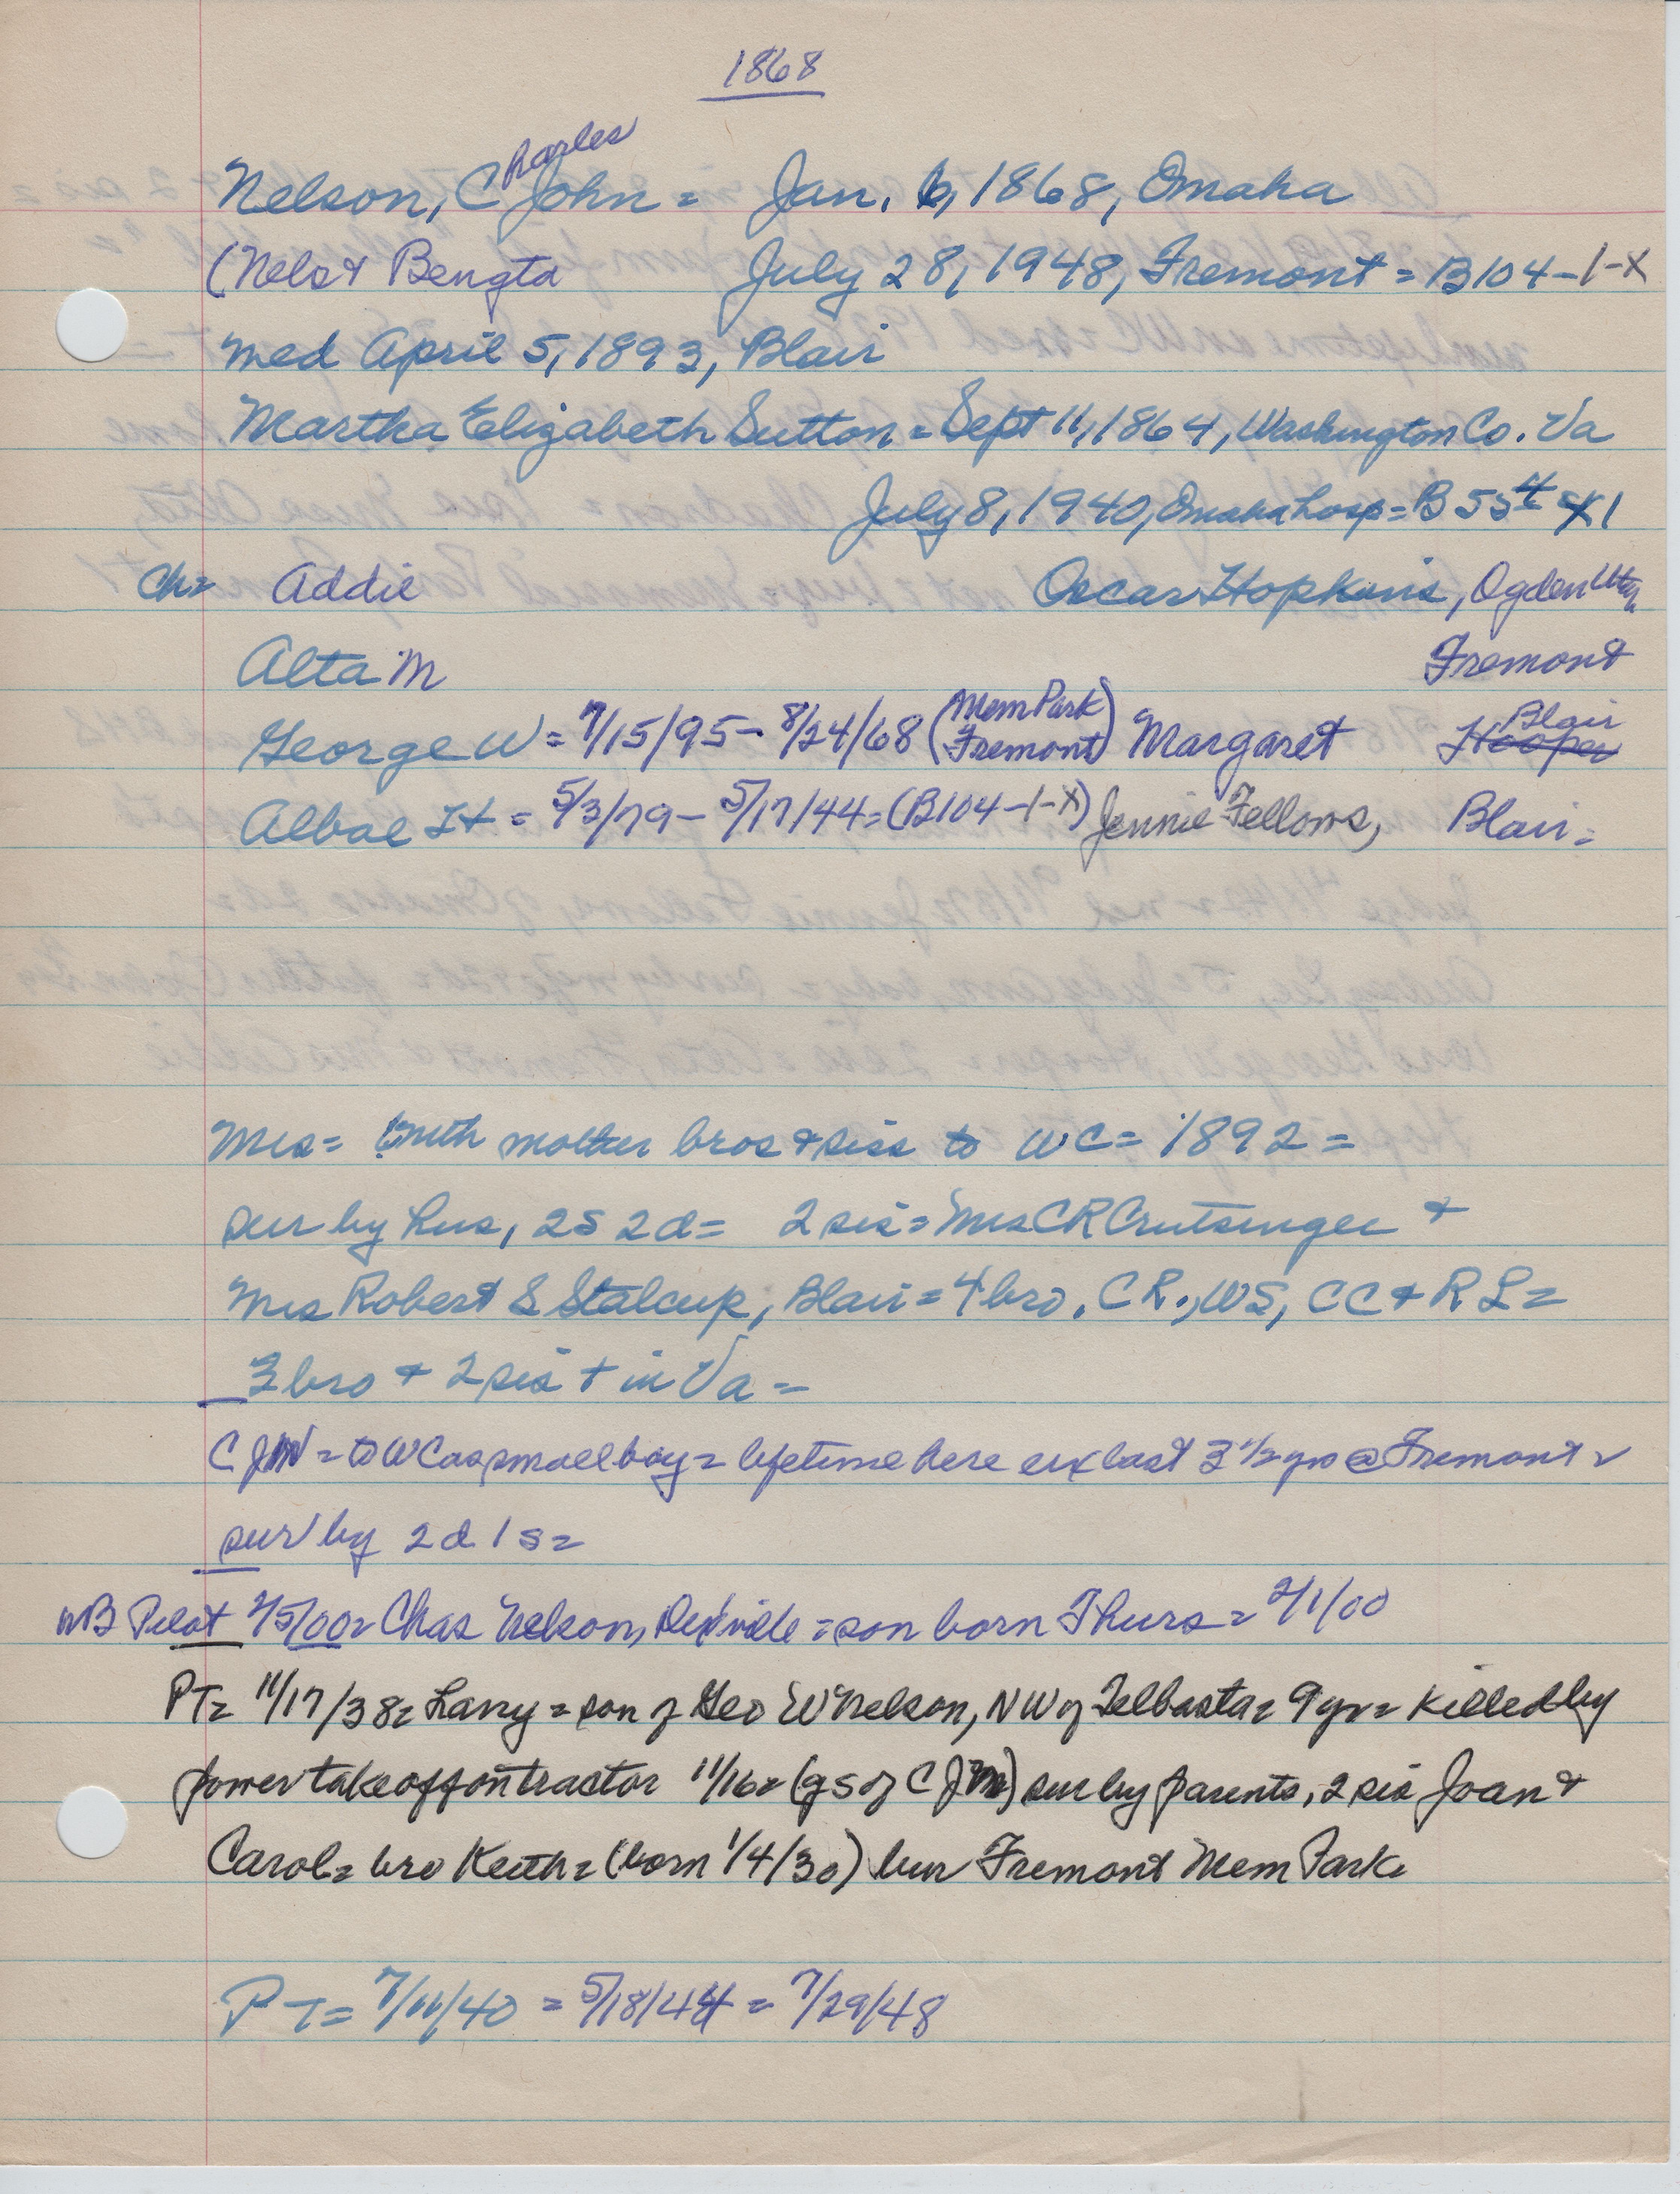 1868
Nelson, Charles John = Jan. 6, 1868, Omaha
(Nels & Bengta July 28, 1948, Fremont = B104-1-X
med April 5, 1893, Blair
Martha Elizabeth Sutton = Sept 11, 1864, Washington Co. Va
July 8, 1940, Omaha hosp = B 55
Ch= Addie Oscar Hopkins, Ogden Utah
Alta M Fremont
George W = 7/15/95 - 8/24/68 (Mem Park Fremont) Margaret Hooper Blair
Albae H = 5/3/79 - 5/17/44 = (B104-1-X) Jennie Fellows, Blair =
Mrs = with mother bros & siss to WC = 1892 =
sur by hus, 2s 2d = 2 sis = Mrs CR Crutsinger &
Mrs Robert S Stalcup, Blair = 4 bro, CR., WS, CC & RL =
3 bro & 2 sis + in Va =
CJN = to WC as small boy = lifetime here ex last 3 1/2 yrs @ Fremont =
sur by 2d 1s =
Pilot 2/5/00 = Chas Nelson, = son born Thurs = 2/1/00
PT = 11/17/38 = Larry = son of Geo W Nelson, NW of Telbasta = 9 yr = killed by
power take off on tractor 11/16 = (gs of CJN) sur by parents, 2 sis Joan &
Carol = bro Keith = (born 1/4/30) bur Fremont Mem Park
PT = 7/11/40 = 5/18/44 = 7/29/48